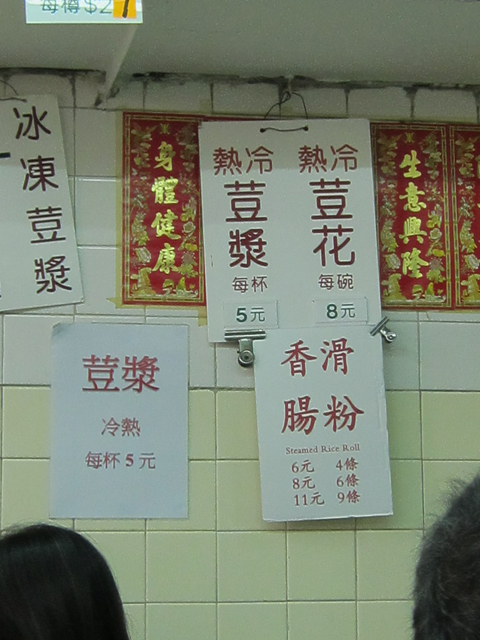 每樽$27
冰凍荳漿
身體健康
熱冷
荳漿
每杯
5元
熱冷
荳花
每碗
8元
生意興隆
荳漿
冷熱
每杯5元
香滑
腸粉
Steamed Rice Roll
6元 4條
8元 6條
11元 9條